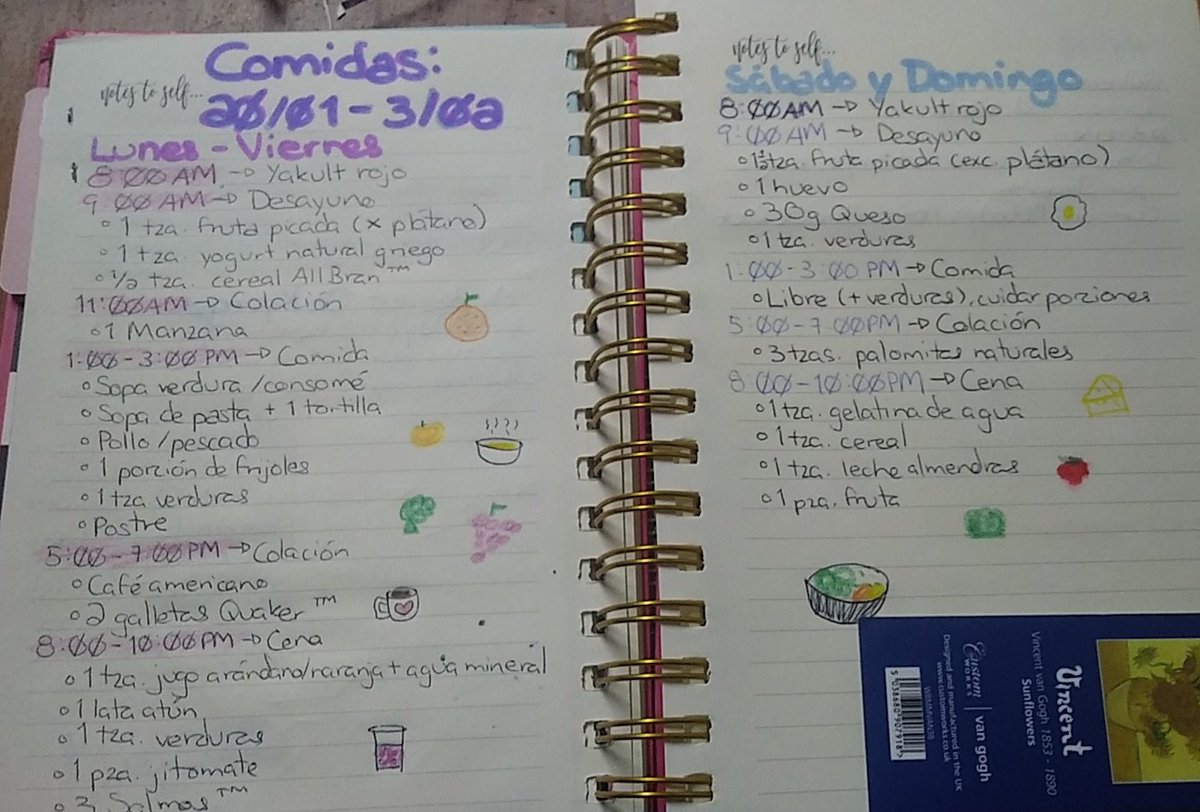 Comidas:
notes to self...
20/01 - 3/02
Lunes - Viernes
8:00 AM → Yakult rojo
9:00 AM → Desayuno
◦ 1 tza. fruta picada (x plátano)
◦ 1 tza. yogurt natural griego
◦ 1/2 tza. cereal All Bran™
11:00 AM → Colación
◦ 1 Manzana
1:00 - 3:00 PM → Comida
◦ Sopa verdura / consomé
◦ Sopa de pasta + 1 tortilla
◦ Pollo / pescado
◦ 1 porción de frijoles
◦ 1 tza. verduras
◦ Postre
5:00 - 7:00 PM → Colación
◦ Café americano
◦ 2 galletas Quaker™
8:00 - 10:00 PM → Cena
◦ 1 tza. jugo arándano/naranja + agua mineral
◦ 1 lata atún
◦ 1 tza. verduras
◦ 1 pza. jitomate
◦ Salmas™
notes to self...
Sábado y Domingo
8:00 AM → Yakult rojo
9:00 AM → Desayuno
◦ tza. fruta picada (exc. plátano)
◦ 1 huevo
◦ 30g Queso
◦ 1 tza. verduras
1:00 - 3:00 PM → Comida
◦ Libre (+ verduras), cuidar porciones
5:00 - 7:00 PM → Colación
◦ 3 tzas. palomitas naturales
8:00 - 10:00 PM → Cena
◦ 1 tza. gelatina de agua
◦ 1 tza. cereal
◦ 1 tza. leche almendras
◦ 1 pza. fruta
Vincent
Vincent van Gogh 1853 - 1890
Sunflowers
Custom WORKS | van gogh
Designed and manufactured in the UK
www.customworks.co.uk
5 038680 907918